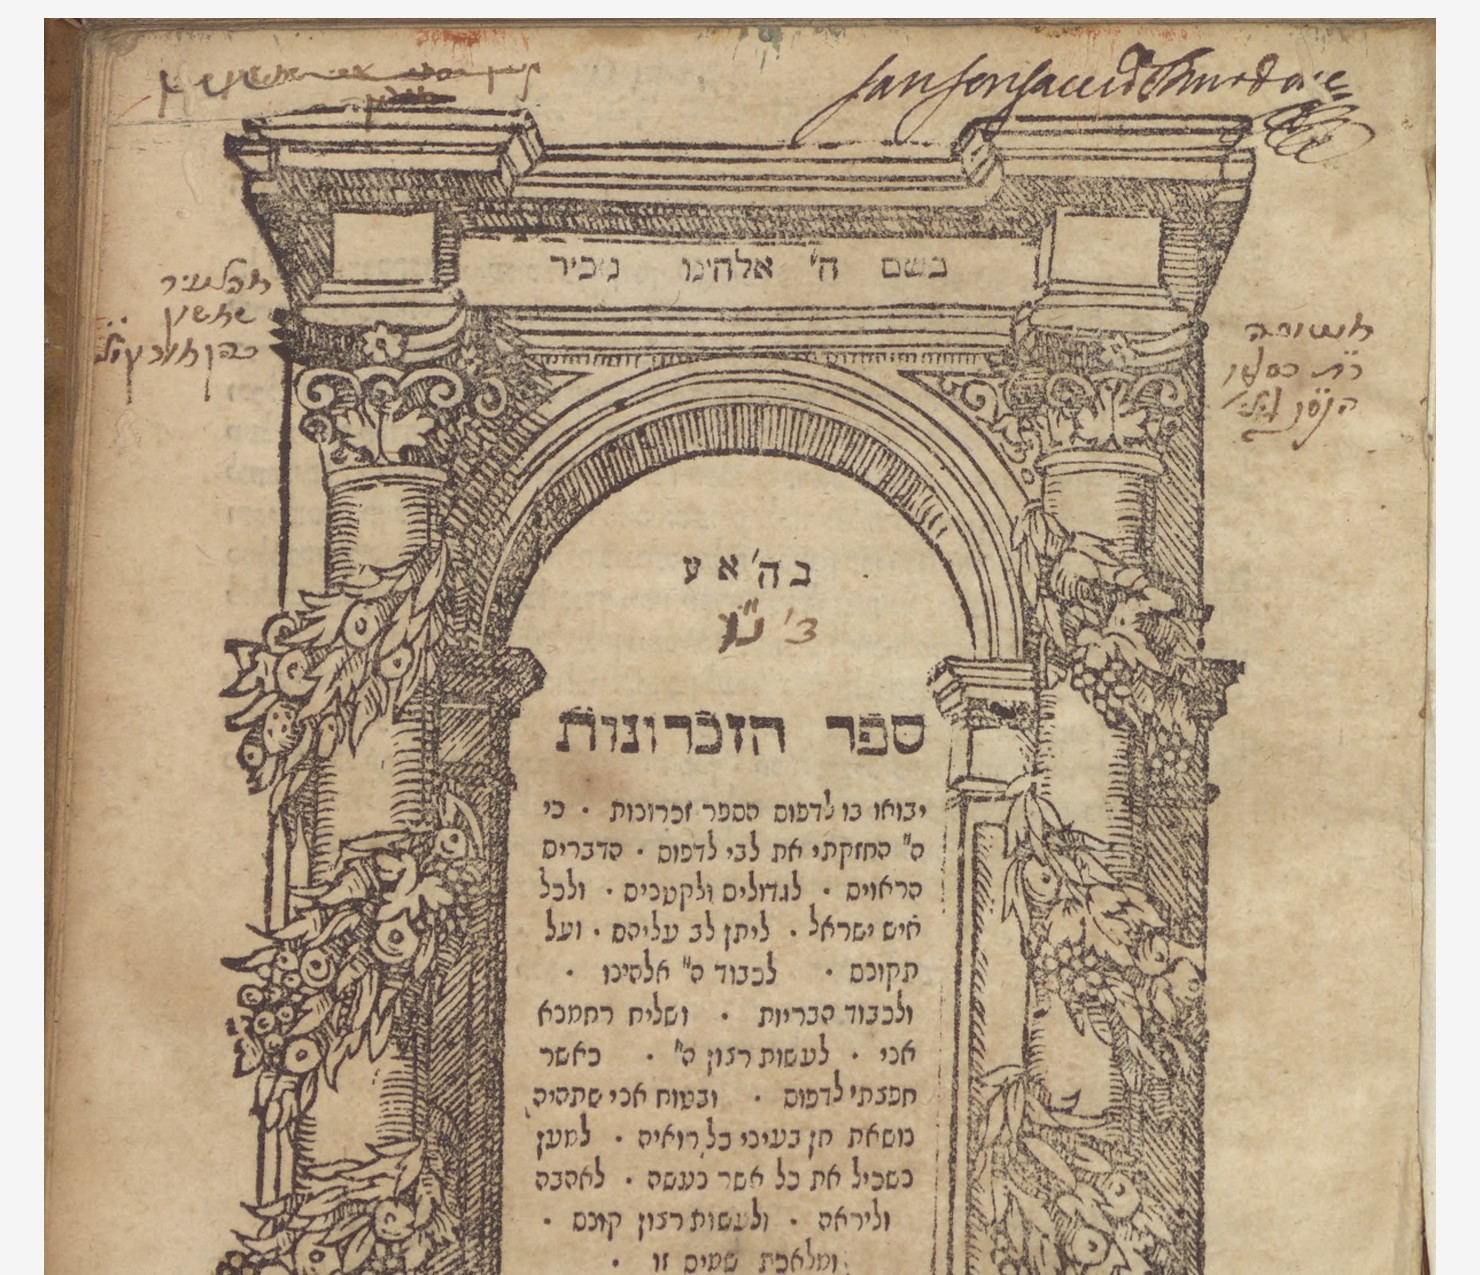 בשם ה' אלהינו נזכיר
ב ה' א ע
ספר הזכרונות
יבואו בו לדפוס הספר זכרונות · כי
ה" החזקתי את לבי לדפוס · הדברים
הראוים · לגדולים ולקטנים · ולכל
איש ישראל · ליתן לב עליהם · ועל
תקונם · לכבוד ה" אלהינו ·
ולכבוד הבריות · ושליח רחמנא
אני · לעשות רצון ה" · כאשר
חפצתי לדפוס · ובטוח אני שתהיה
נושאת חן בעיני כל רואיה · למען
נשכיל את כל אשר נעשה · לאהבה
וליראה · ולעשות רצון קונם ·
ומלאכת שמים זו ·